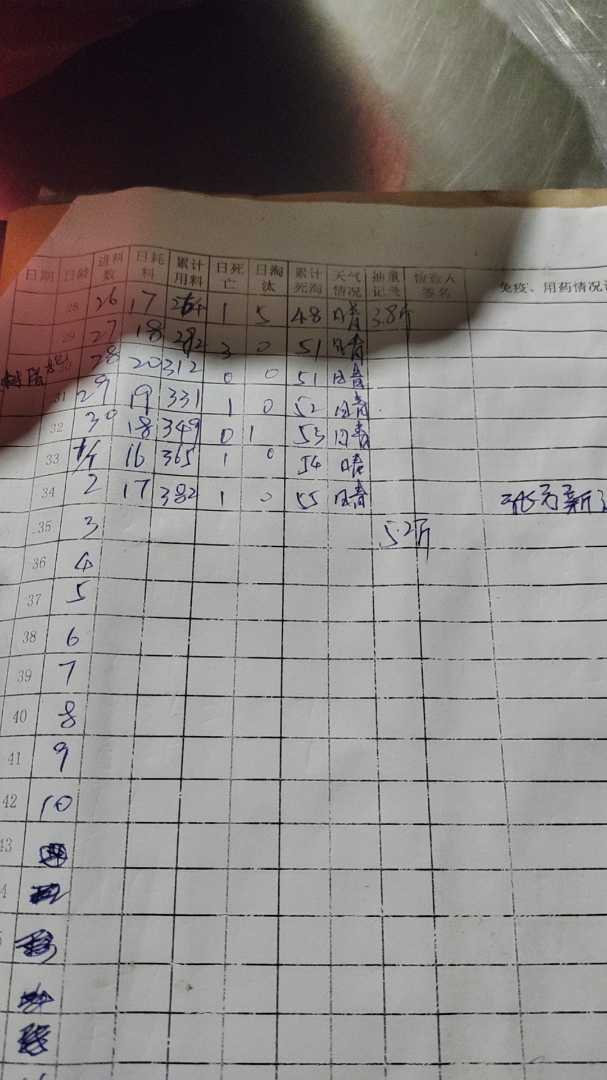 日期 日龄 进料数 日耗料 累计用料 日死亡 日淘汰 累计死淘 天气情况 抽重记录 签名 免疫、用药情况
28 26 17 264 1 5 48 晴 3.8斤
29 27 18 282 3 0 51 晴
28 20 312 0 0 51 晴
31 29 19 331 1 0 52 晴
32 30 18 349 0 1 53 晴
33 16 365 1 0 54 晴
34 2 17 382 1 0 55 晴
35 3 52斤
36 4
37 5
38 6
39 7
40 8
41 9
42 10